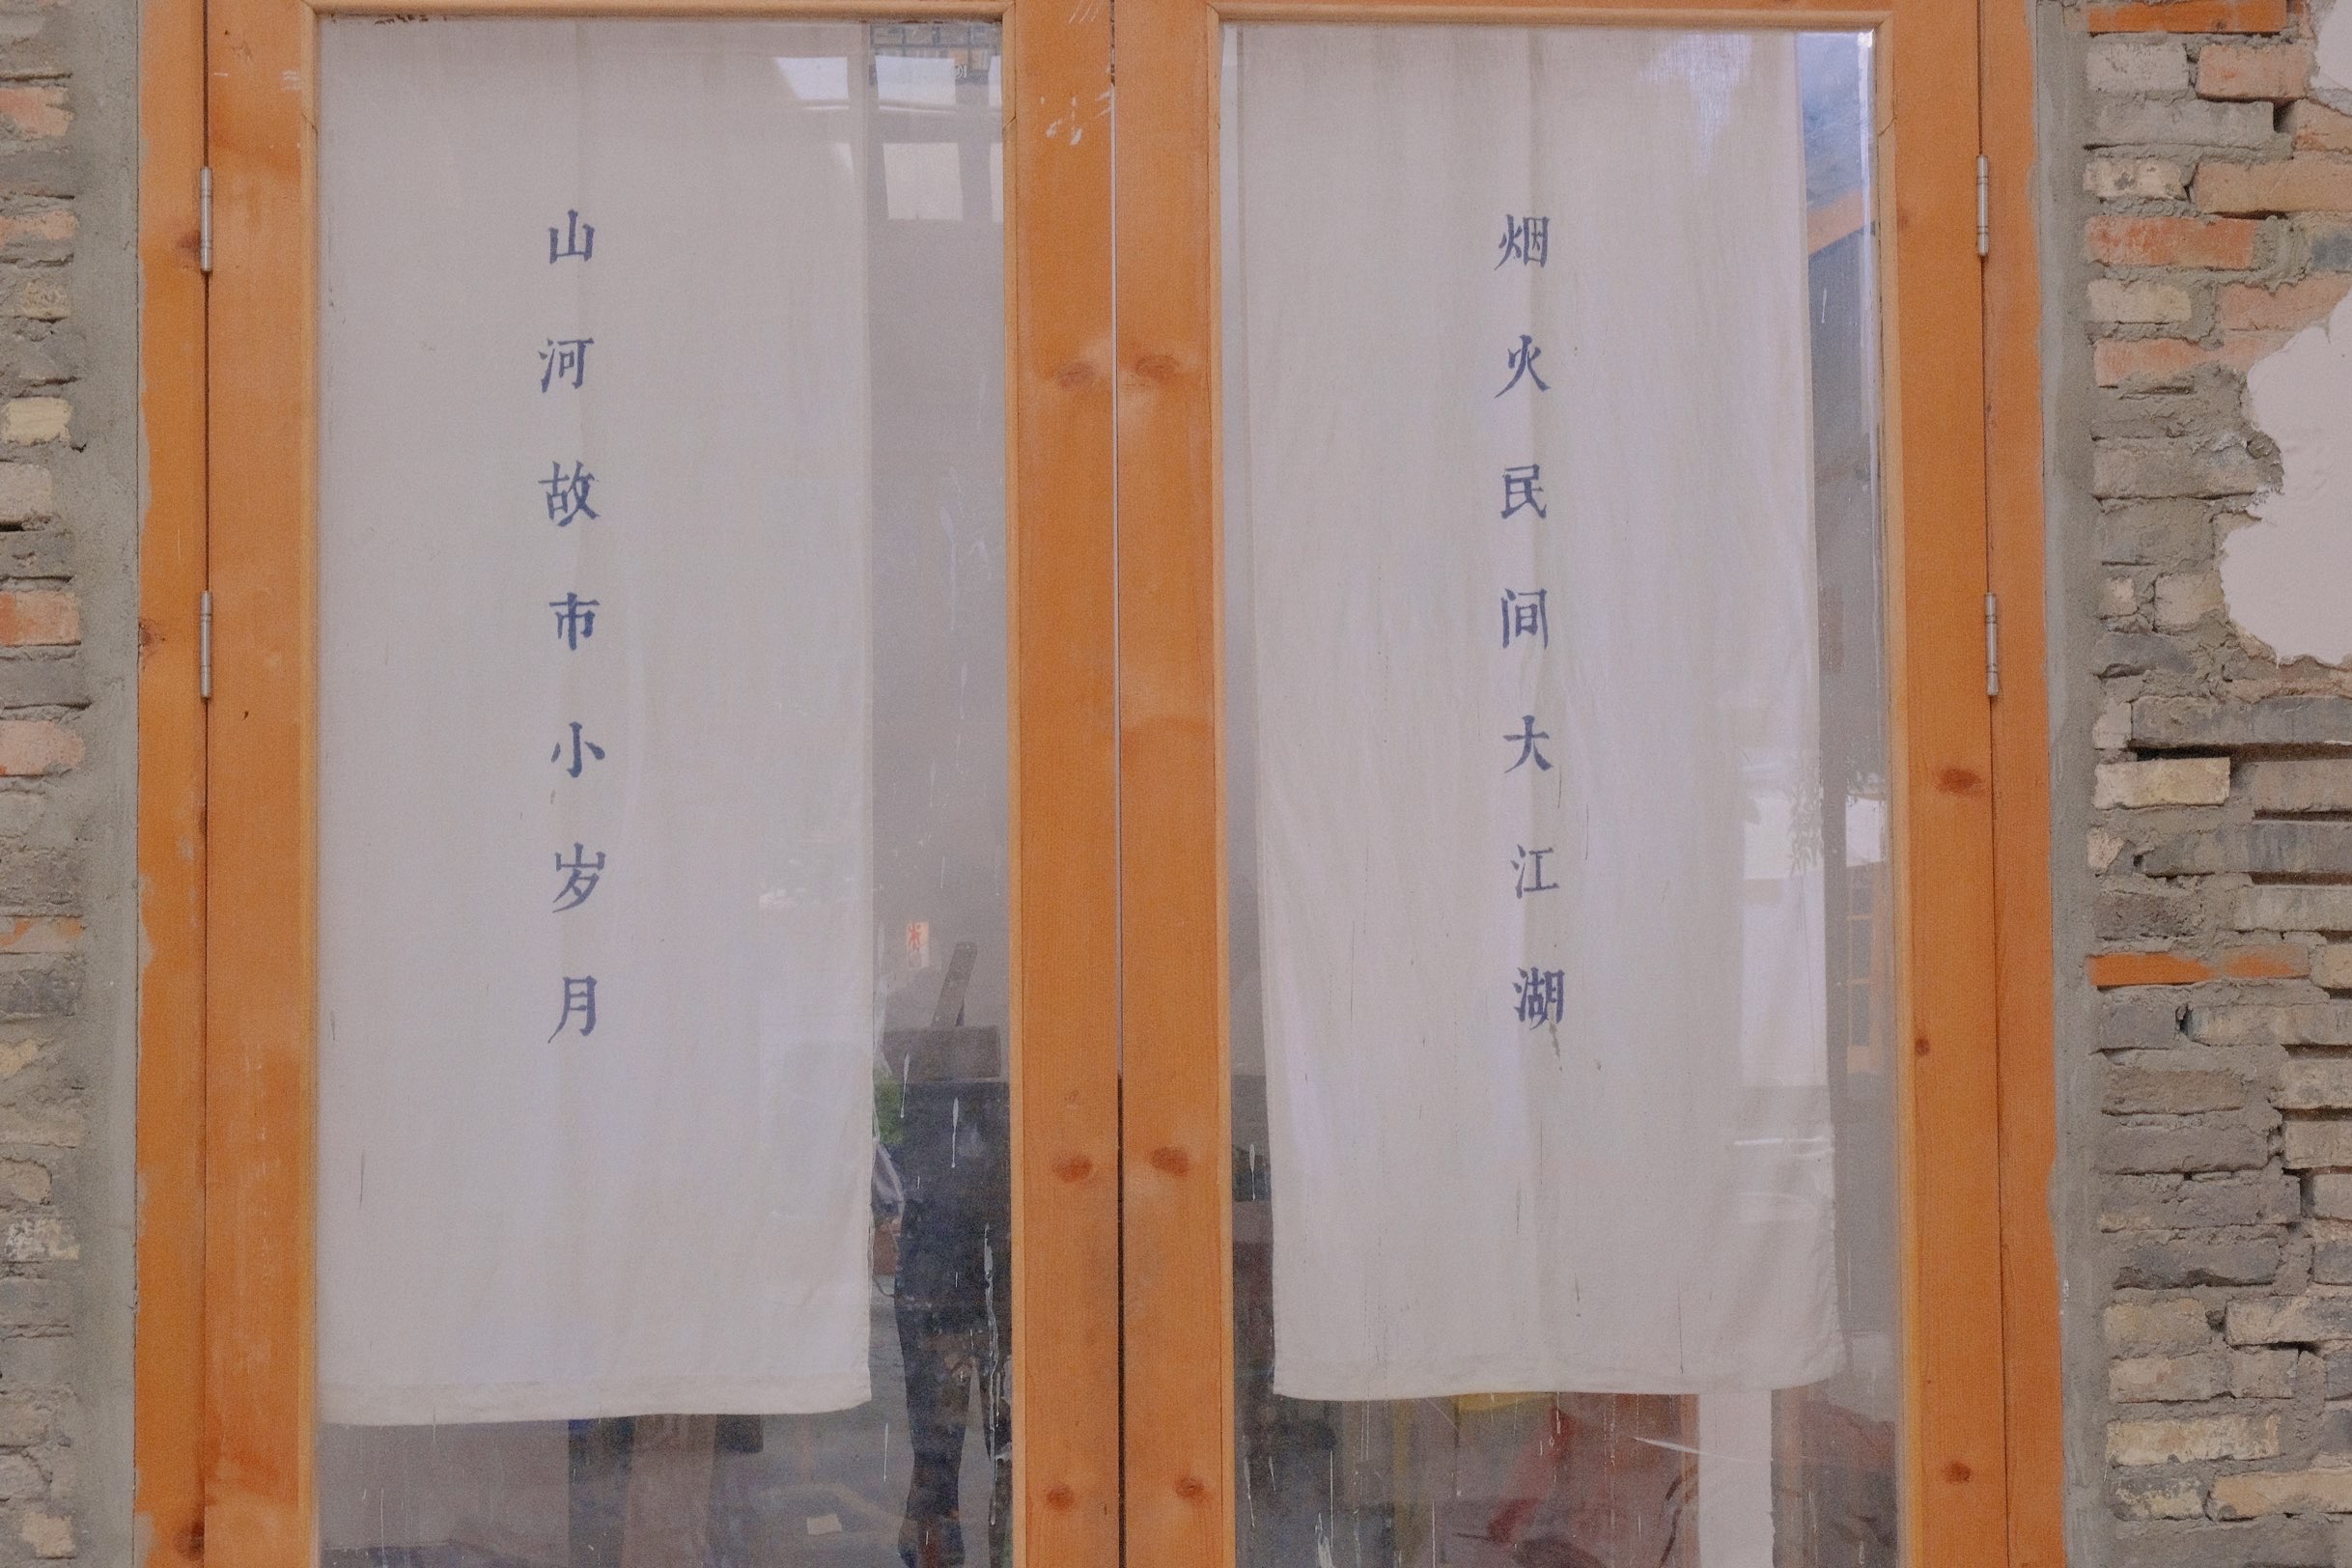 烟火民间大江湖
山河故市小岁月